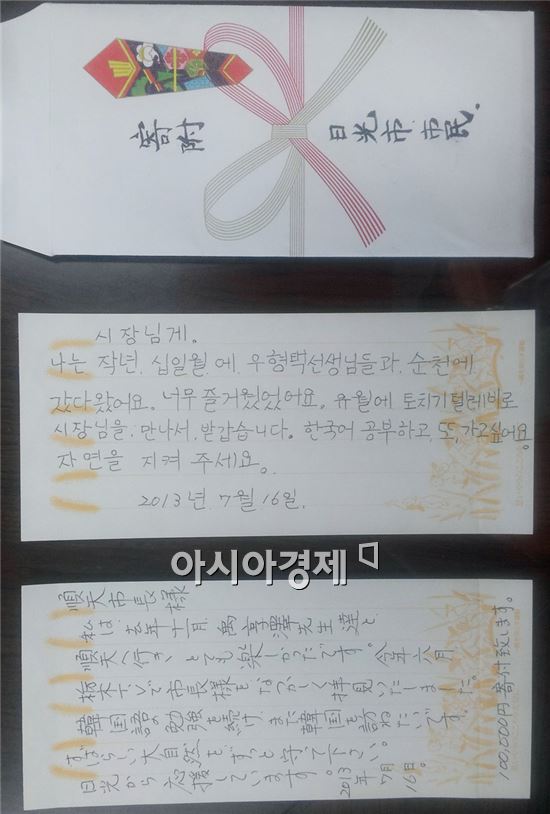 寄附
日光市市民
시장님게.
나는 작년, 십일월에 우형택선생님들과, 순천에
갔다왔어요. 너무 즐거웠었어요. 유월에 토치기텔레비로
시장님을, 만나서, 받갑습니다. 한국어 공부하고, 또, 가고싶어요.
자면을 지켜 주세요.
2013년 7월 16일.
아시아경제
順天市長様
私は、去年十一月、禹亨澤先生達と
順天へ行き、とても楽しかったです。今年六月
栃木テレビで市長様をなつかしく拝見いたしました。
韓国語の勉強を続け、また韓国を訪ねたいです。
すばらしい大自然をずっと守って下さい。
日光から応援しています。
2013年7月16日。
100,000円寄付致します。